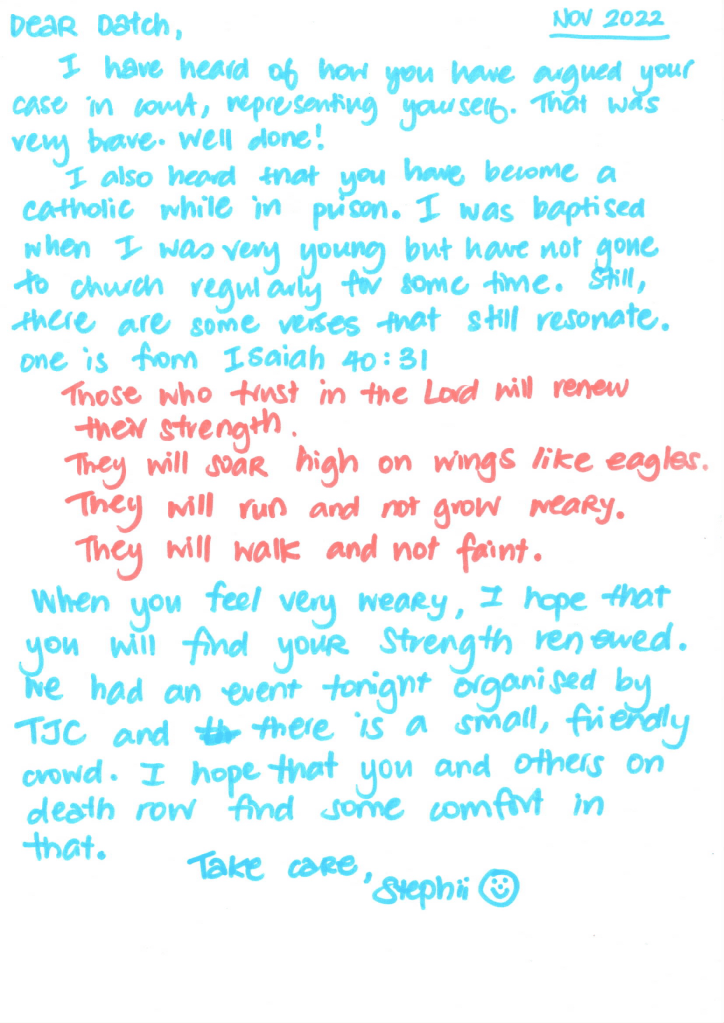 Dear Datch,
NOV 2022
I have heard of how you have argued your
case in court, representing yourself. That was
very brave. Well done!
I also heard that you have become a
catholic while in prison. I was baptised
when I was very young but have not gone
to church regularly for some time. Still,
there are some verses that still resonate.
One is from Isaiah 40:31
Those who trust in the Lord will renew
their strength.
They will soar high on wings like eagles.
They will run and not grow weary.
They will walk and not faint.
When you feel very weary, I hope that
you will find your strength renewed.
We had an event tonight organised by
TJC and there is a small, friendly
crowd. I hope that you and others on
death row find some comfort in
that.
Take care,
Stephii